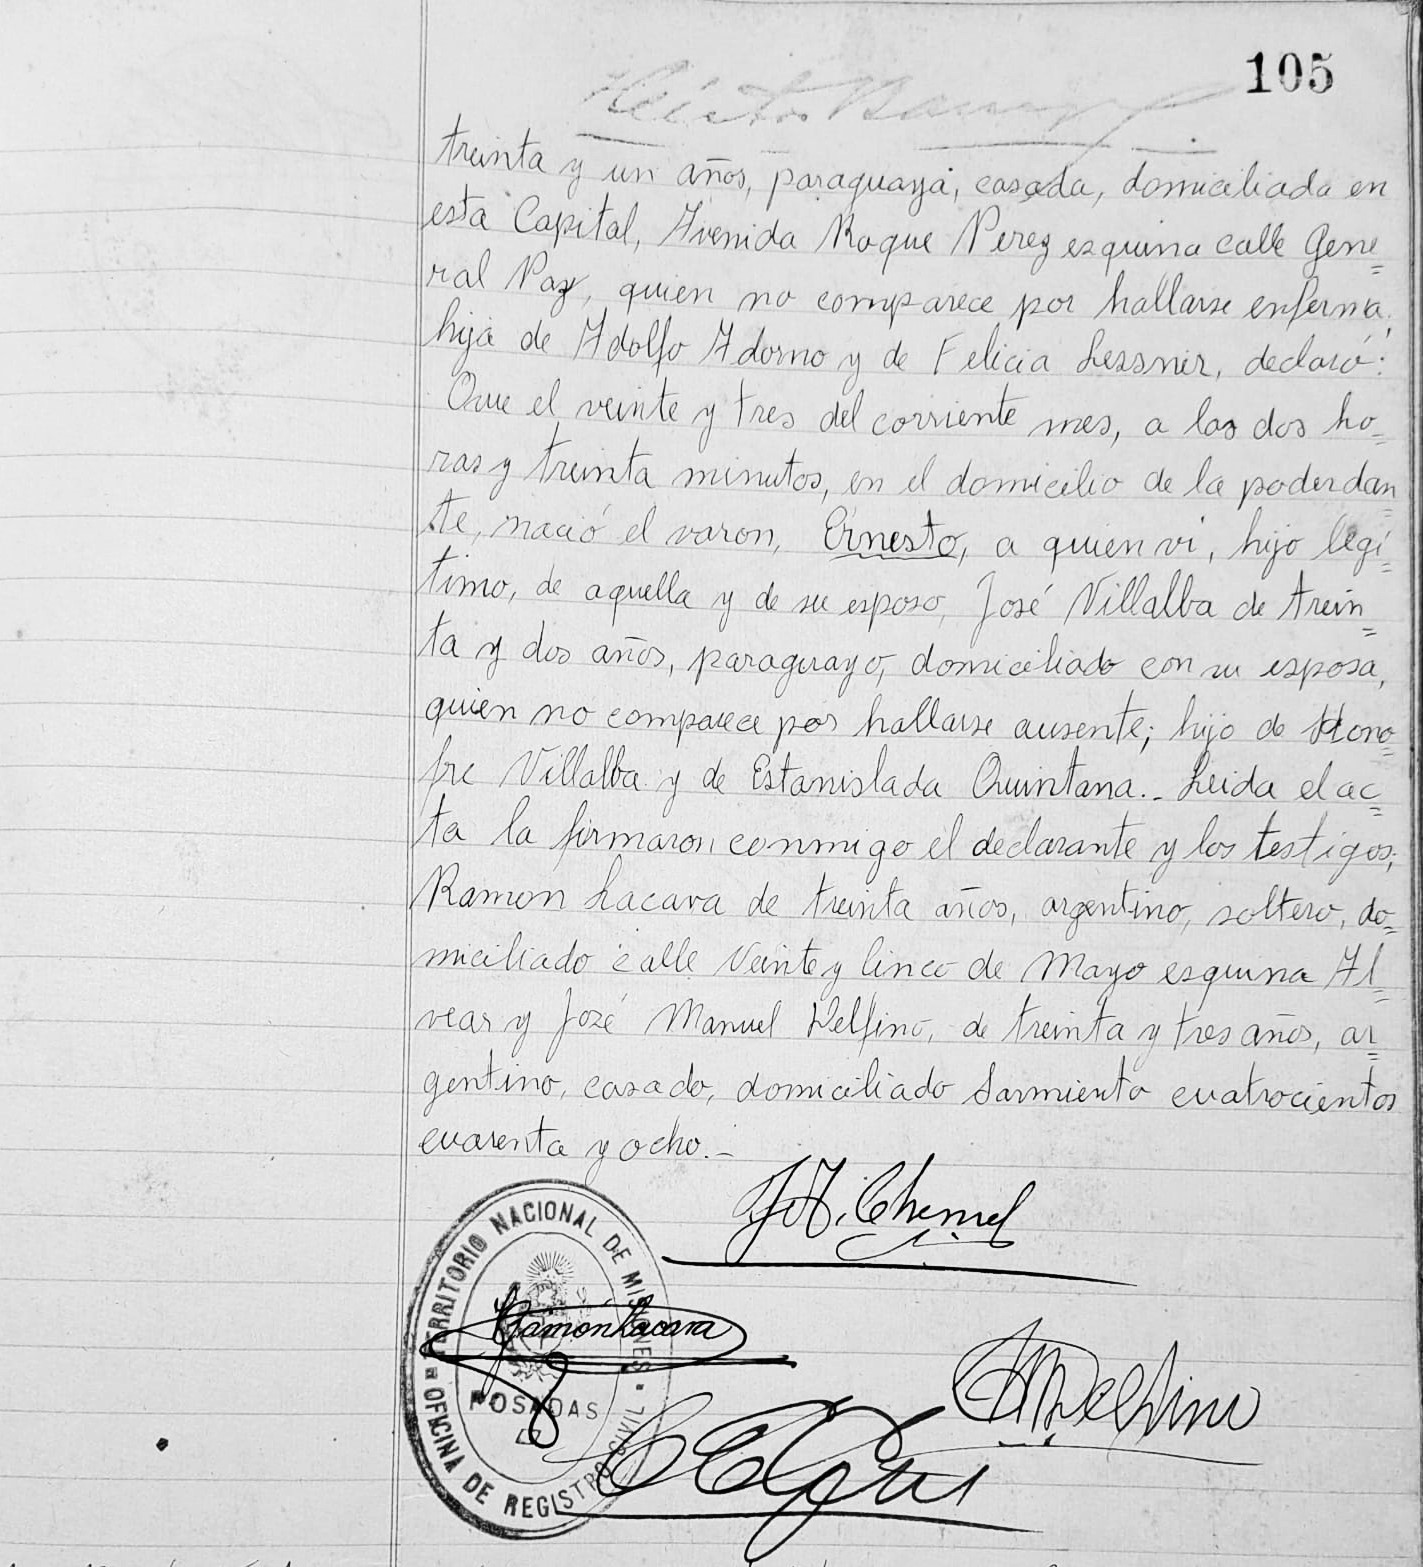 105
Héctor
treinta y un años, paraguaya, casada, domiciliada en
esta Capital, Avenida Roque Perez esquina calle Gene=
ral Paz, quien no comparece por hallarse enferma,
hija de Adolfo Adorno y de Felicia Lessner, declaró:
Que el veinte y tres del corriente mes, a las dos ho=
ras y treinta minutos, en el domicilio de la poderdan=
te, nació el varon, Ernesto, a quien vi, hijo legi=
timo, de aquella y de su esposo, José Villalba de trein=
ta y dos años, paraguayo, domiciliado con su esposa,
quien no comparece por hallarse ausente; hijo de Hono=
fre Villalba y de Estanislada Quintana.- Leida el ac=
ta la firmaron conmigo el declarante y los testigos;
Ramon Lacava de treinta años, argentino, soltero, do=
miciliado calle Veinte y Cinco de Mayo esquina Al=
vear y José Manuel Delfino, de treinta y tres años, ar=
gentino, casado, domiciliado Sarmiento cuatrocientos
cuarenta y ocho.-
Chemel
TERRITORIO NACIONAL DE MISIONES
Ramón Lacava
POSADAS
Delfino
OFICINA DE REGISTRO CIVIL